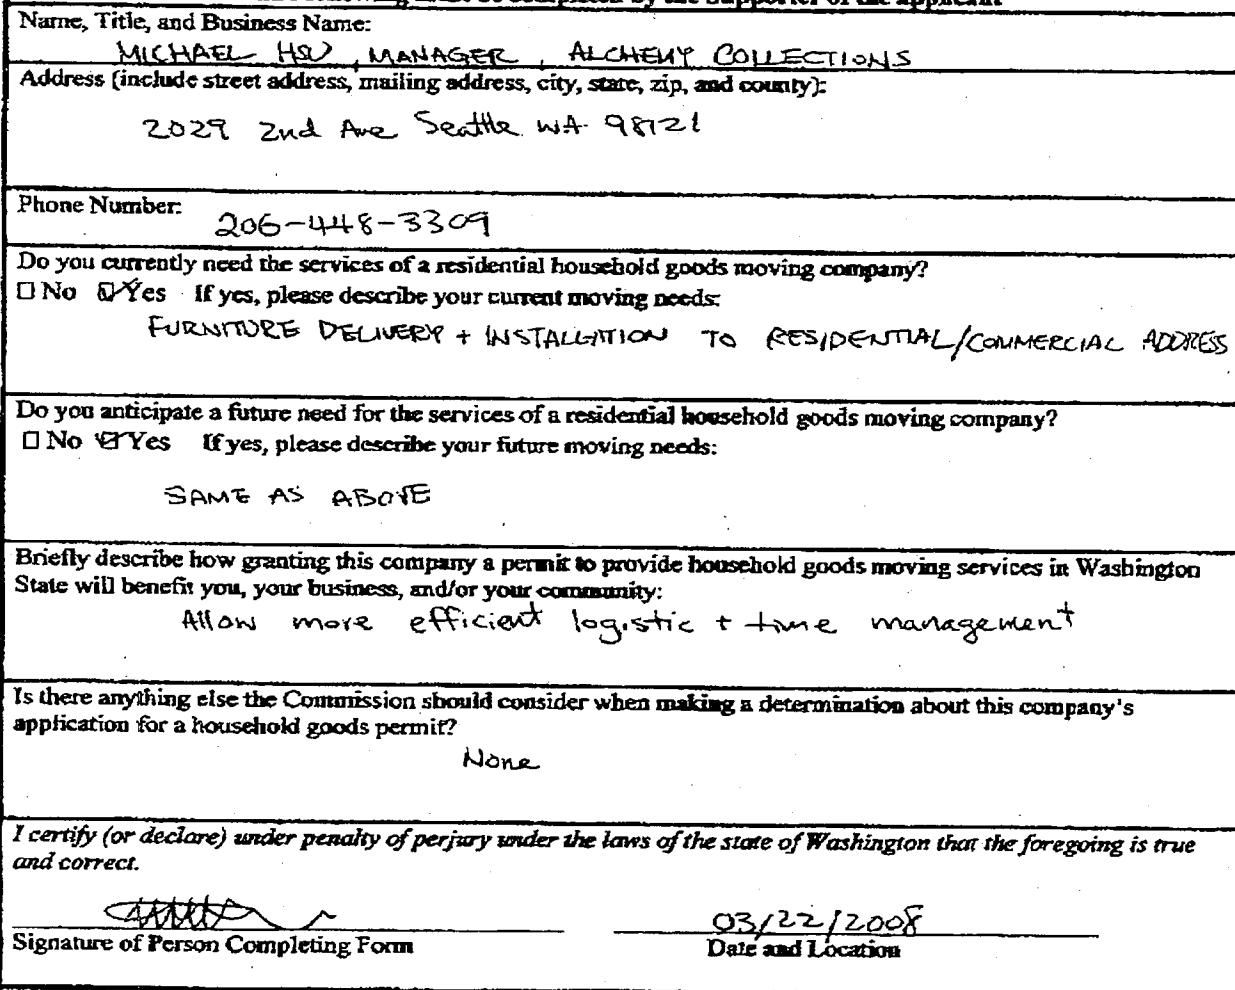 following must be completed by the Supporter of the applicant
Name, Title, and Business Name:
MICHAEL HSU, MANAGER, ALCHEMY COLLECTIONS
Address (include street address, mailing address, city, state, zip, and county):
2029 2nd Ave Seattle WA 98121
Phone Number:
206-448-3309
Do you currently need the services of a residential household goods moving company?
☐ No ☑ Yes If yes, please describe your current moving needs:
FURNITURE DELIVERY + INSTALLATION TO RESIDENTIAL/COMMERCIAL ADDRESS
Do you anticipate a future need for the services of a residential household goods moving company?
☐ No ☑ Yes If yes, please describe your future moving needs:
SAME AS ABOVE
Briefly describe how granting this company a permit to provide household goods moving services in Washington
State will benefit you, your business, and/or your community:
Allow more efficient logistic + time management
Is there anything else the Commission should consider when making a determination about this company's
application for a household goods permit?
None
I certify (or declare) under penalty of perjury under the laws of the state of Washington that the foregoing is true
and correct.
03/22/2008
Signature of Person Completing Form
Date and Location